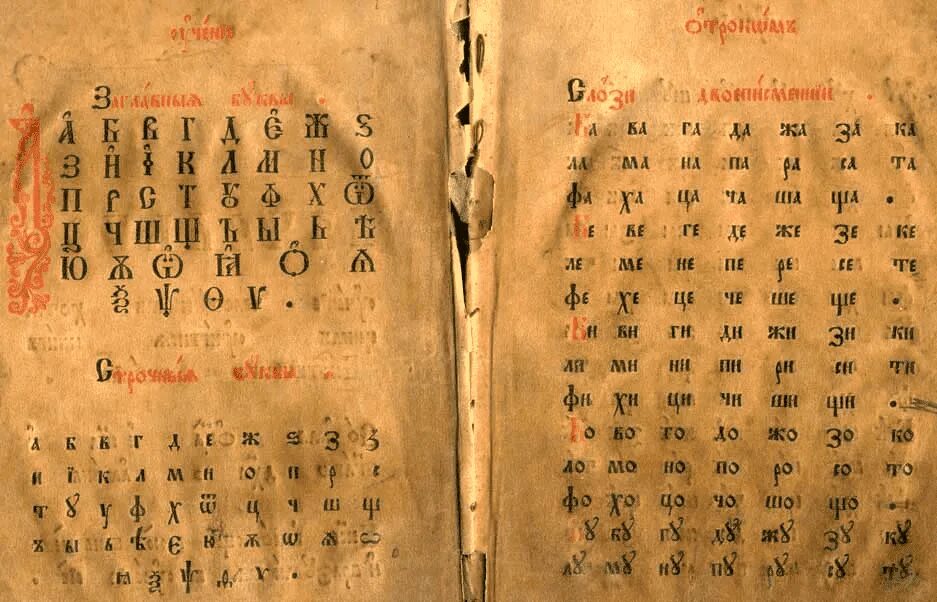 оу҆че́нїе
Загла́вныѧ бꙋ́квы .
А Б В Г Д Є Ж Ѕ
З И І К Л М Н О
П Р С Т Ꙋ Ф Х Ѿ
Ц Ч Ш Щ Ъ Ы Ь Ѣ
Ю Ѫ Ѡ Ꙗ Ѻ Ѧ
Ѯ Ѱ Ѳ Ѵ .
Стро́чныѧ бꙋ́квы .
а б в г д е ж ѕ з ꙁ
и ї к л м н о п р с
т ꙋ у ф х ѿ ц ч ш щ
ъ ы ь ѣ є ю ѫ ѡ ѧ ѡ
ꙗ ѯ ѱ ѳ ѵ .
Ѻ҆трокѡ́мъ
Сло́зи двоепи́сменнїи .
Ба ва га да жа за ка
ла ма на па ра са та
фа ха ца ча ша ща .
Бе ве ге де же зе ке
ле ме не пе ре се те
фе хе це че ше ще .
Би ви ги ди жи зи ки
ли ми ни пи ри си ти
фи хи ци чи ши щи .
Бо во го до жо зо ко
ло мо но по ро со то
фо хо цо чо шо що .
Бꙋ вꙋ гꙋ дꙋ жꙋ зꙋ кꙋ
лꙋ мꙋ нꙋ пꙋ рꙋ сꙋ тꙋ